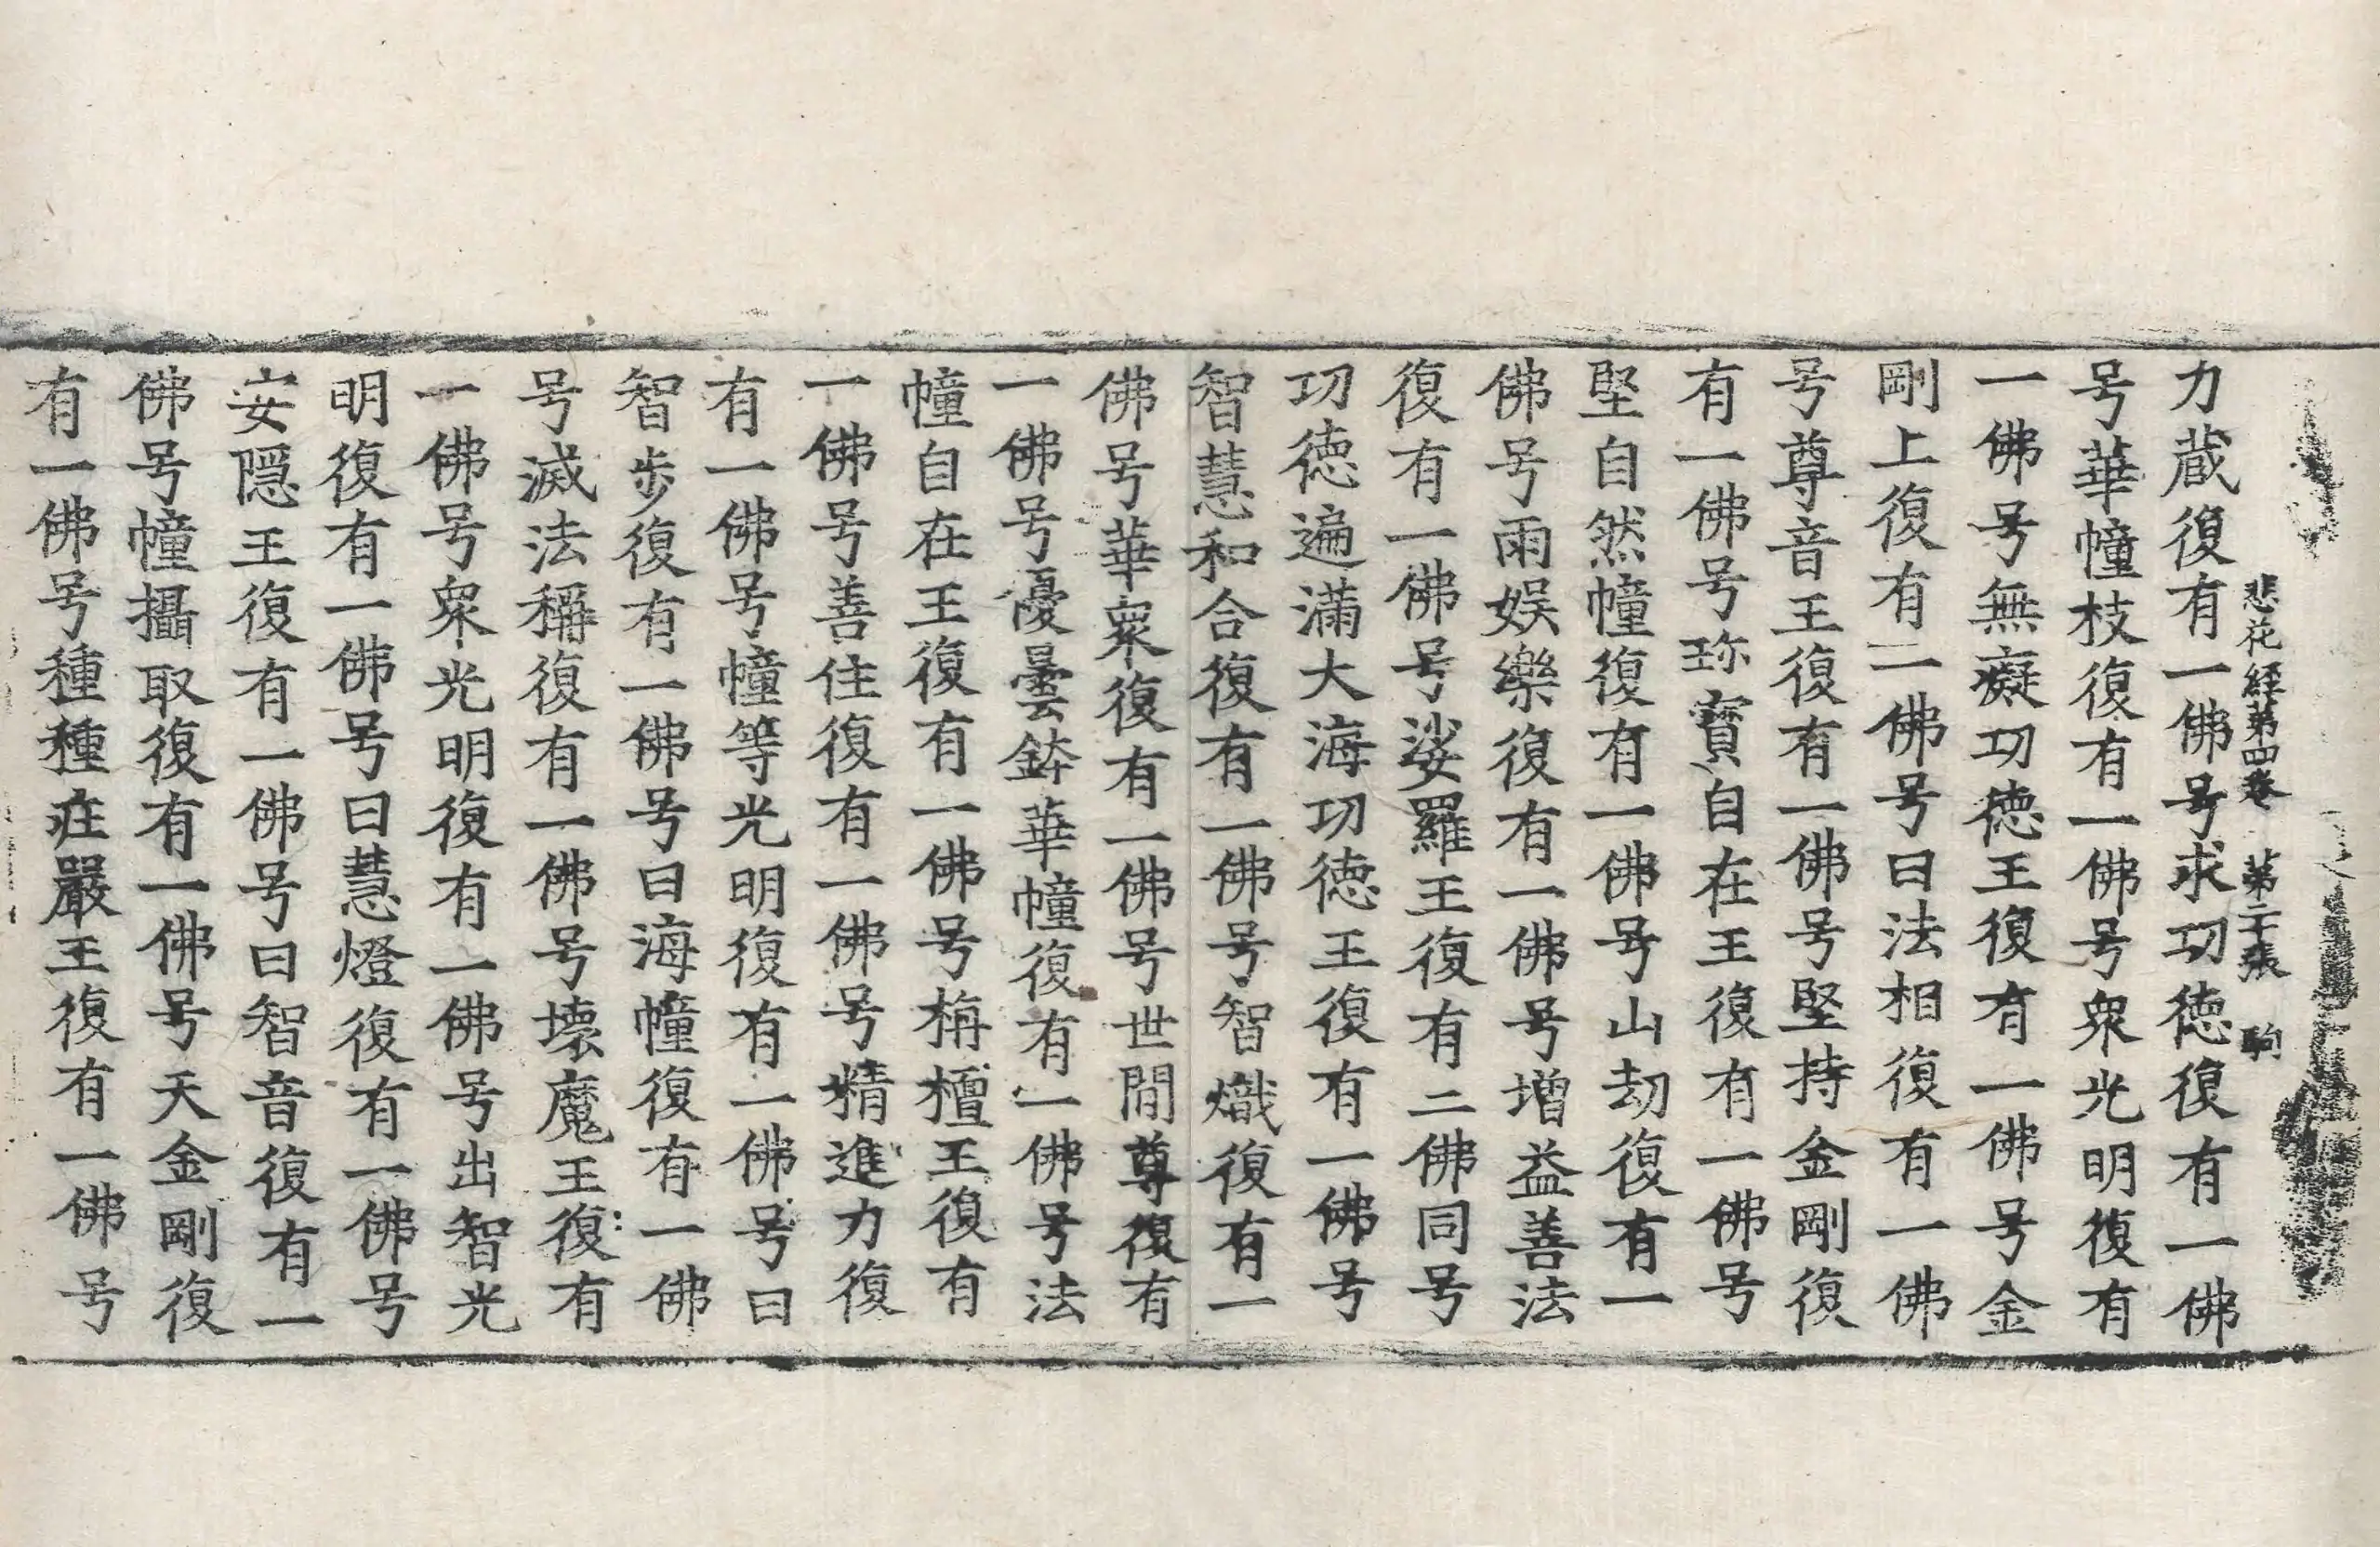 悲花経第四卷 第二十張 駒
力蔵復有一佛号求功徳復有一佛
号華幢枝復有一佛号衆光明復有
一佛号無癡功徳王復有一佛号金
剛上復有一佛号曰法相復有一佛
号尊音王復有一佛号堅持金剛復
有一佛号珎寶自在王復有一佛号
堅自然幢復有一佛号山劫復有一
佛号雨娯樂復有一佛号増益善法
復有一佛号娑羅王復有二佛同号
功徳遍滿大海功徳王復有一佛号
智慧和合復有一佛号智熾復有一
佛号華衆復有一佛号世間尊復有
一佛号優曇鉢華幢復有一佛号法
幢自在王復有一佛号栴檀王復有
一佛号善住復有一佛号精進力復
有一佛号幢等光明復有一佛号曰
智步復有一佛号曰海幢復有一佛
号滅法稱復有一佛号壞魔王復有
一佛号衆光明復有一佛号出智光
明復有一佛号曰慧燈復有一佛号
安隱王復有一佛号曰智音復有一
佛号幢攝取復有一佛号天金剛復
有一佛号種種庄嚴王復有一佛号